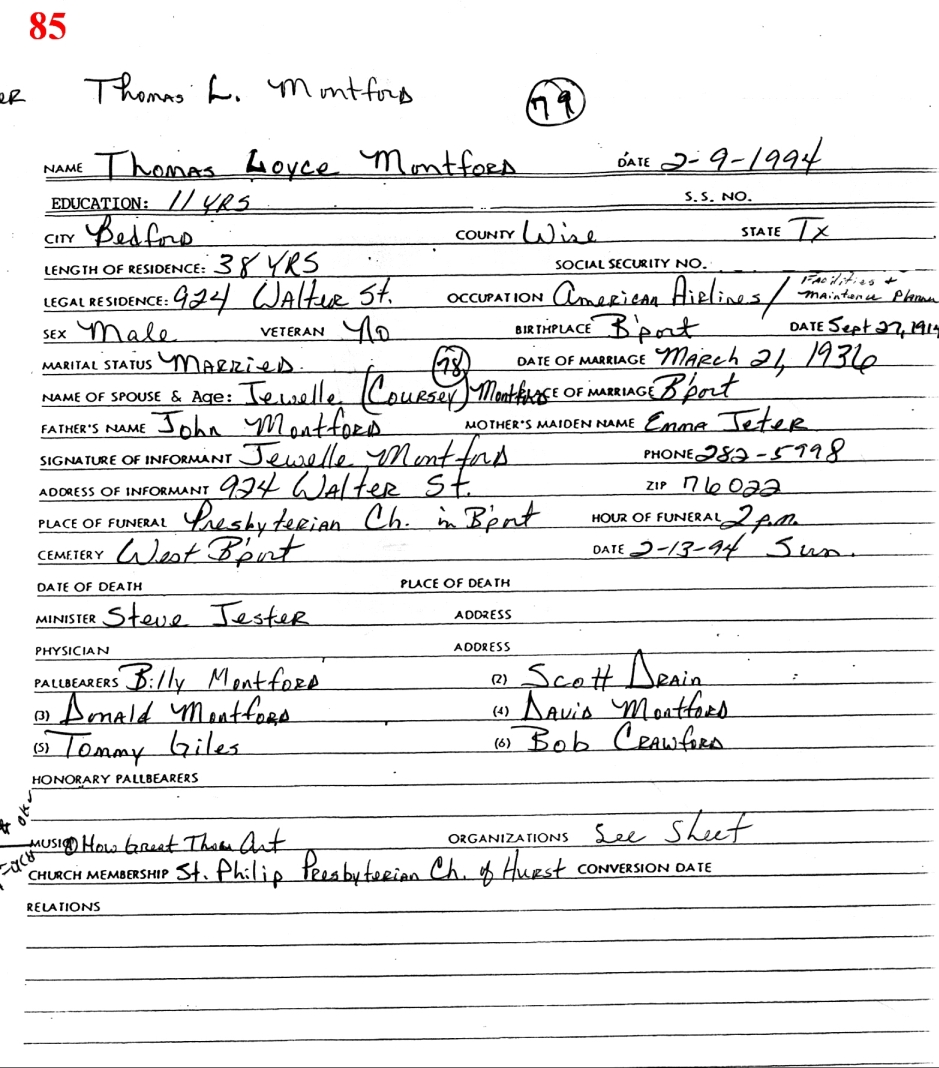 85
ER Thomas L. Montford
79
NAME Thomas Loyce Montford DATE 2-9-1994
EDUCATION: 11 YRS S.S. NO.
CITY Bedford COUNTY Wise STATE Tx
LENGTH OF RESIDENCE: 38 YRS SOCIAL SECURITY NO.
LEGAL RESIDENCE: 924 Walter St. OCCUPATION American Airlines / Facilities + Maintence Planner
SEX Male VETERAN No BIRTHPLACE B'port DATE Sept 27, 1914
MARITAL STATUS Married DATE OF MARRIAGE March 21, 1936
78
NAME OF SPOUSE & Age: Jewelle (Coursey) Montford PLACE OF MARRIAGE B'port
FATHER'S NAME John Montford MOTHER'S MAIDEN NAME Emma Jeter
SIGNATURE OF INFORMANT Jewelle Montford PHONE 282-5998
ADDRESS OF INFORMANT 924 Walter St. ZIP 76022
PLACE OF FUNERAL Presbyterian Ch. in B'port HOUR OF FUNERAL 2 p.m.
CEMETERY West B'port DATE 2-13-94 Sun.
DATE OF DEATH PLACE OF DEATH
MINISTER Steve Jester ADDRESS
PHYSICIAN ADDRESS
PALLBEARERS Billy Montford (2) Scott Drain
(3) Donald Montford (4) David Montford
(5) Tommy Giles (6) Bob Crawford
HONORARY PALLBEARERS
MUSIC How Great Thou Art ORGANIZATIONS See Sheet
CHURCH MEMBERSHIP St. Philip Presbyterian Ch. of Hurst CONVERSION DATE
RELATIONS